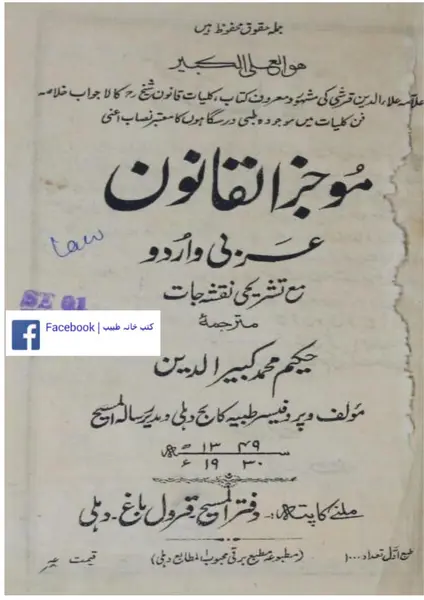 جملہ حقوق محفوظ ہیں
ھو العلی الکبیر
علامہ علاء الدین قرشی کی مشہور و معروف کتاب، کلیات قانون شیخ رح کا لاجواب خلاصہ
فن کلیات میں موجودہ طبی درسگاہوں کا معتبر نصاب اعنی
موجز القانون
عربی و اردو
law
مع تشریحی نقشہ جات
Facebook | کتب خانہ طبیب
مترجمۂ
حکیم محمد کبیر الدین
مؤلف و پروفیسر طبیہ کالج دہلی و مدیر رسالہ المسیح
۱۳۴۹ھ
۱۹۳۰ء
ملنے کا پتہ:۔ دفتر المسیح۔ قرول باغ۔ دہلی
طبع اوّل تعداد ۱۰۰۰ (مطبوعہ مطبع برقی محبوب المطابع دہلی) قیمت